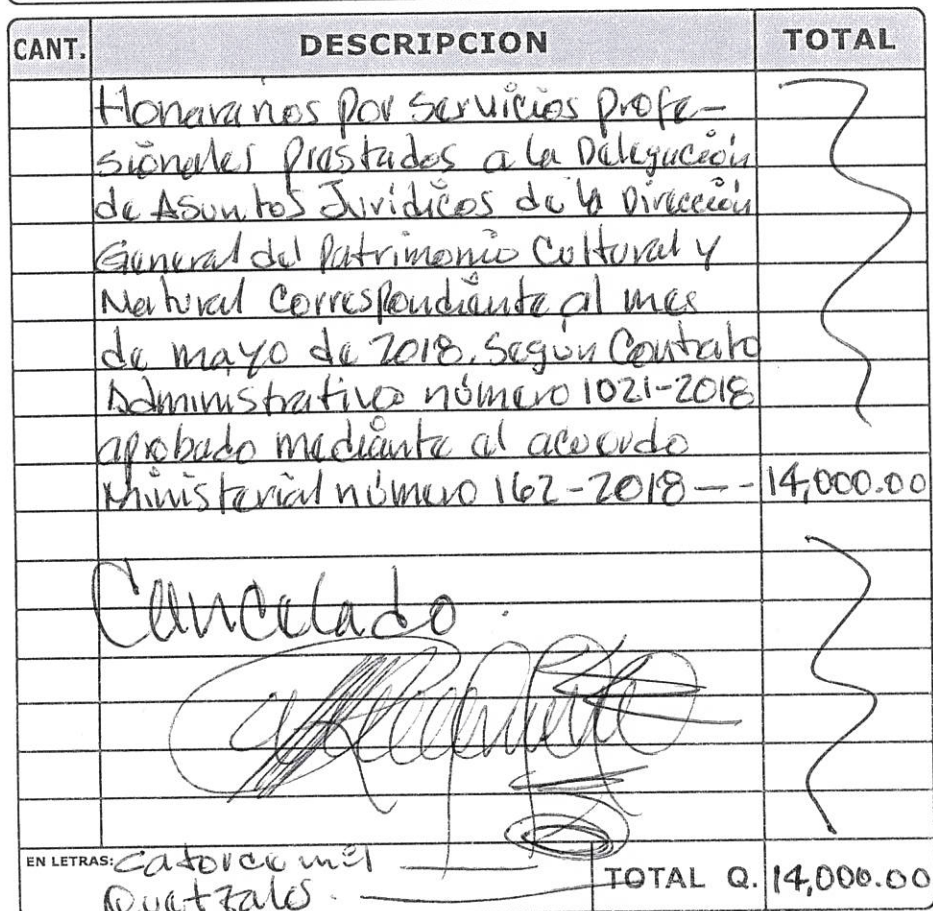 CANT. DESCRIPCION TOTAL
Honorarios por Servicios profe-
sionales prestados a la Delegación
de Asuntos Jurídicos de la Dirección
General del Patrimonio Cultural y
Natural Correspondiente al mes
de mayo de 2018. Según Contrato
Administrativo número 1021-2018
aprobado mediante el acuerdo
Ministerial número 162-2018 -- 14,000.00
Cancelado.
EN LETRAS: Catorce mil
Quetzales. TOTAL Q. 14,000.00